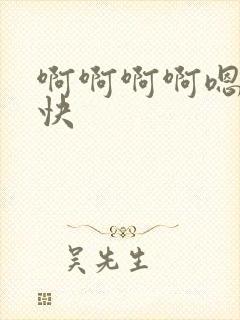 啊啊啊啊嗯
快
吴先生